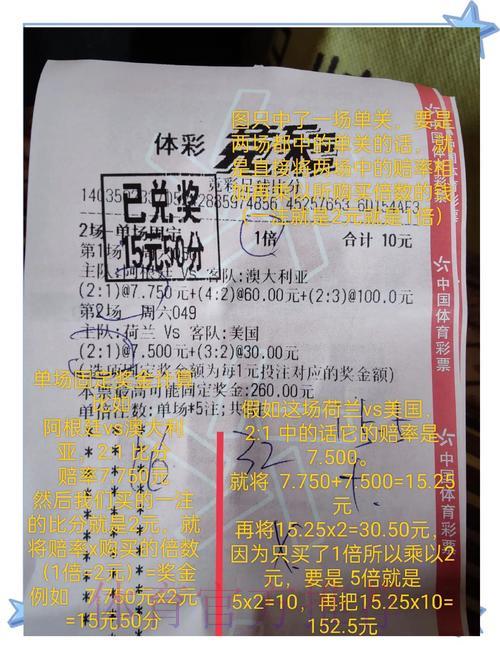 图只中了一场单关，要是
两场都中的单关的话，就
是直接将两场中的赔率相
（一注就是2元就是1倍）
体彩
已兑奖
15元50分
2场-单场固定
1倍
合计 10元
第1场
主队:阿根廷 Vs 客队:澳大利亚
(2:1)@7.750元+(4:2)@60.00元+(2:3)@100.0元
第2场 周六049
主队:荷兰 Vs 客队:美国
(2:1)@7.500元+(3:2)@30.00元
固定奖金额为每1元投注对应的奖金额)
本票最高可能固定奖金:260.00元
单场固定奖金计算
比如
阿根廷vs澳大利
亚，2:1 比分
赔率7.750元
然后我们买的一注
的比分就是2元，就
将赔率x购买的倍数
（1倍=2元）=奖金
例如 7.750元x2元
=15元50分
假如这场荷兰vs美国，
2:1 中的话它的赔率是
7.500。
就将 7.750+7.500=15.25
元
再将15.25x2=30.50元，
因为只买了1倍所以乘以2
元，要是 5倍就是
5x2=10，再把15.25x10=
152.5元
32
中国体育彩票
中国体育彩票